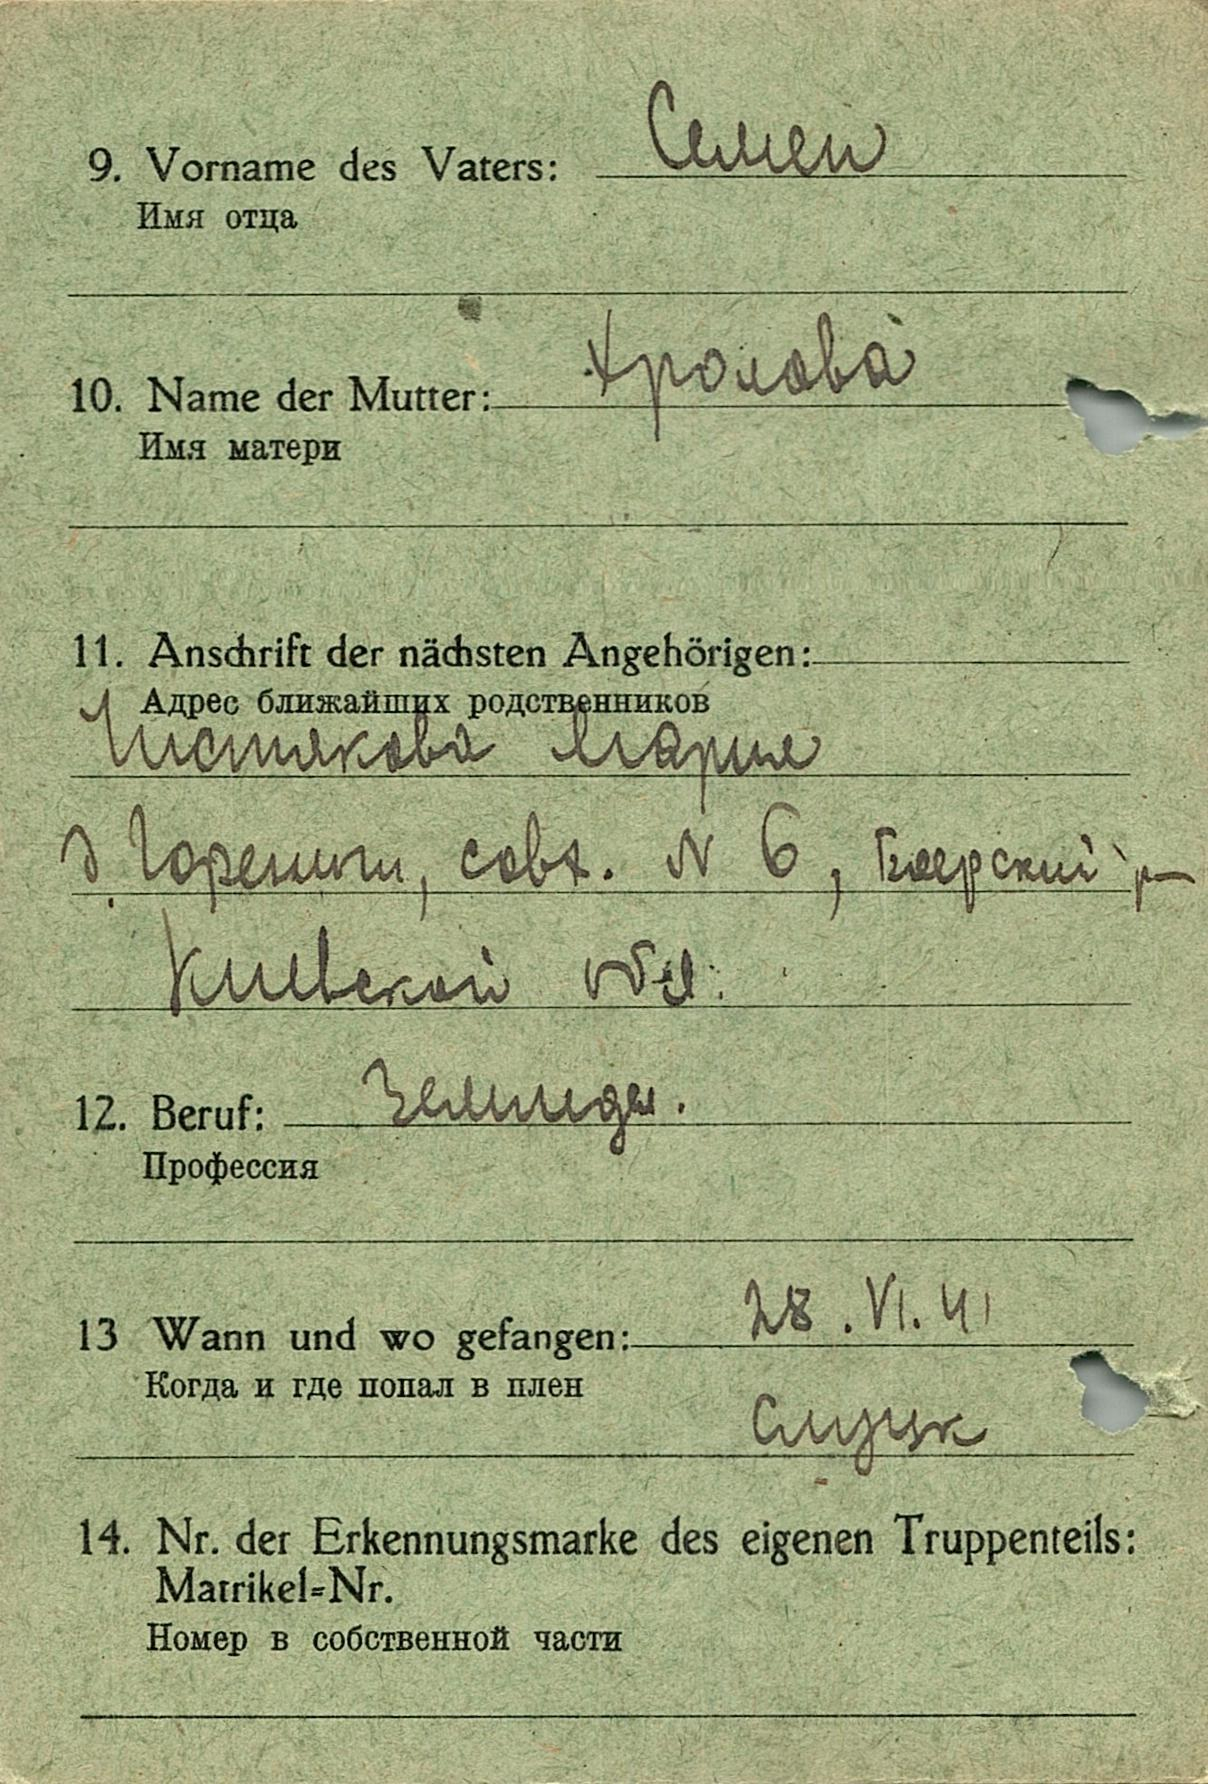 9. Vorname des Vaters: Семен
Имя отца
10. Name der Mutter: Хролова
Имя матери
11. Anschrift der nächsten Angehörigen:
Адрес ближайших родственников
Чистякова Мария
д. Горенычи, совх. N 6, Боярский р-
Киевской обл.
12. Beruf:
Профессия
13 Wann und wo gefangen: 28.VI.41
Когда и где попал в плен
Слуцк
14. Nr. der Erkennungsmarke des eigenen Truppenteils:
Matrikel=Nr.
Номер в собственной части